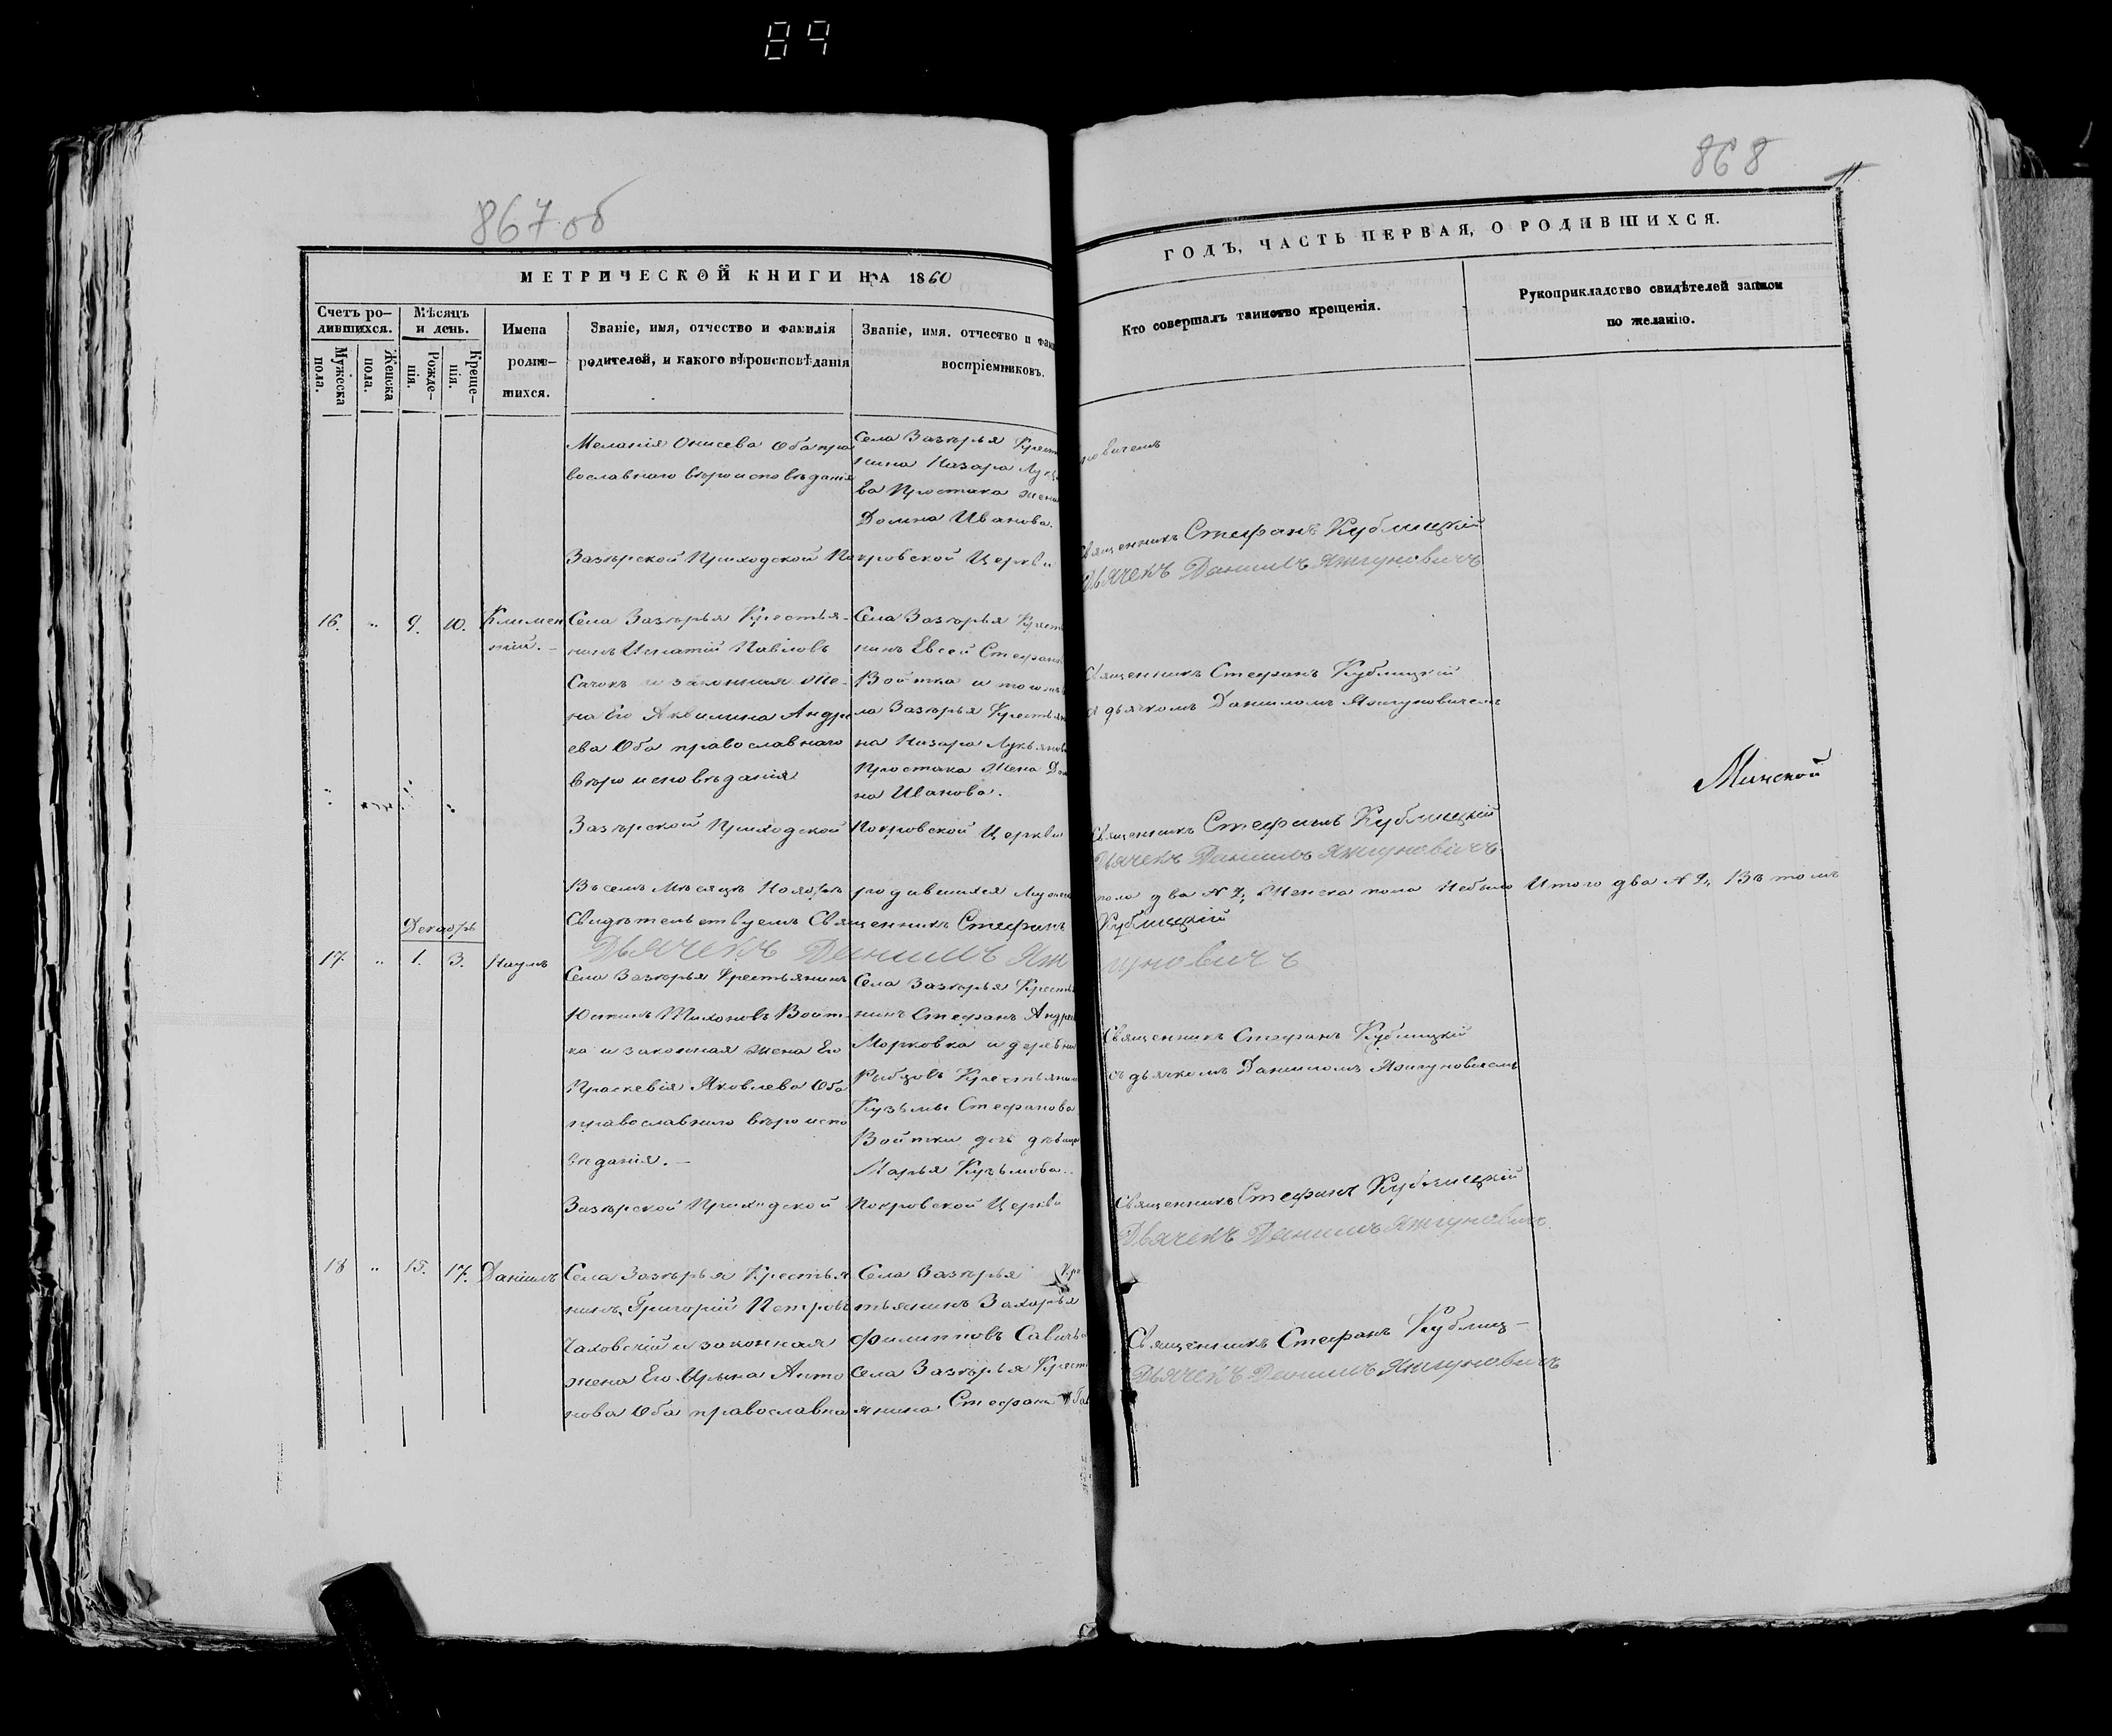 89
867 об
868
МЕТРИЧЕСКОЙ КНИГИ НА 1860
ГОДЪ, ЧАСТЬ ПЕРВАЯ, О РОДИВШИХСЯ.
Счетъ ро-
дившихся.
Мѣсяцъ
и день.
Мужеска
пола.
Женска
пола.
Рожде-
нія.
Креще-
нія.
Имена
родив-
шихся.
Званіе, имя, отчество и фамилія
родителей, и какого вѣроисповѣданія
Званіе, имя. отчество и фам
воспріемниковъ.
Кто совершалъ таинство крещенія.
Рукоприкладство свидѣтелей записи
по желанію.
Меланія Онисева Оба пра
вославнаго вѣроисповѣданія
Села Зазѣрья Крест
нина Назара Лук
ва Простака жена
Домна Иванова.
новичемъ
Зазѣрской Приходской Покровской Церкви
Священникъ Стефанъ Кублицкій
Дьячекъ Данилъ Яжгуновичъ
16. " 9. 10. Климен
тій. -
Села Зазѣрья Крестья-
нинъ Игнатій Павловъ
Сачокъ и законная же-
на Его Акилина Андре
ева Оба православнаго
вѣроисповѣданія
Села Зазѣрья Крест
нинъ Евсей Стефан
Войтка и тогожъ
ла Зазѣрья Крестьян
на Назара Лукьянова
Простака Жена До
на Иванова.
Священникъ Стефанъ Кублицкій
съ дьячкомъ Даниломъ Яжгуновичемъ
Минской
Зазѣрской Приходской Покровской Церкви
Священникъ Стефанъ Кублицкій
Дьячекъ Данилъ Яжгуновичъ
Въ семъ Мѣсяцѣ Ноябрѣ родившихся Мужеска
пола два N 2, Женска пола Небыло Итого два N 2, Въ томъ
Свидѣтельствуемъ Священникъ Стефанъ Кублицкій
Дьячекъ Данилъ Яжгуновичъ
Декабрь
17. " 1. 3. Наумъ
Села Зазѣрья Крестьянинъ
Юстинъ Тихоновъ Войт-
ка и законная жена Его
Праскевія Яковлева Оба
православнаго вѣроиспо
вѣданія. -
Села Зазѣрья Кресть
нинъ Стефанъ Андре
Морковка и деревни
Рыбцовъ Крестьянин
Кузьмы Стефанова
Войтки дочь дѣвица
Марья Кузьмова.
Священникъ Стефанъ Кублицкій
съ дьячкомъ Даниломъ Яжгуновичемъ
Зазѣрской Приходской Покровской Церкви
Священникъ Стефанъ Кублицкій
Дьячекъ Данилъ Яжгуновичъ.
18 " 15. 17. Даніилъ
Села Зазѣрья Крестья
нинъ Григорій Петровъ
Чаховскій и законная
жена Его Ирина Анто
нова Оба православна
Села Зазѣрья Кре
тьянинъ Захарья
Филипповъ Савич
Села Зазѣрья Крест
янина Стефана Га
Священникъ Стефанъ Кублиц-
Дьячекъ Данилъ Яжгуновичъ